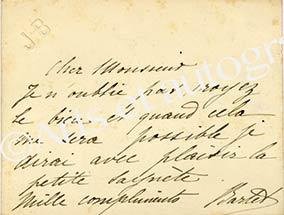 J B
Cher Monsieur
Je n'oublie pas croyez
le bien et quand cela
me sera possible je
dirai avec plaisir la
petite saynète.
Mille compliments Bartet
© Arts et autographes